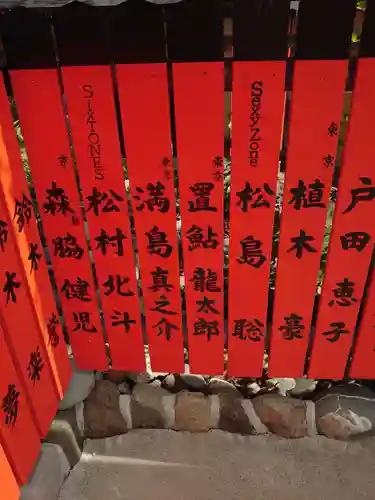 戸田恵子
東京 植木豪
SexyZone 松島聡
東京 置鮎龍太郎
東京 満島真之介
SixTONES 松村北斗
京 森脇健児
鈴木
木